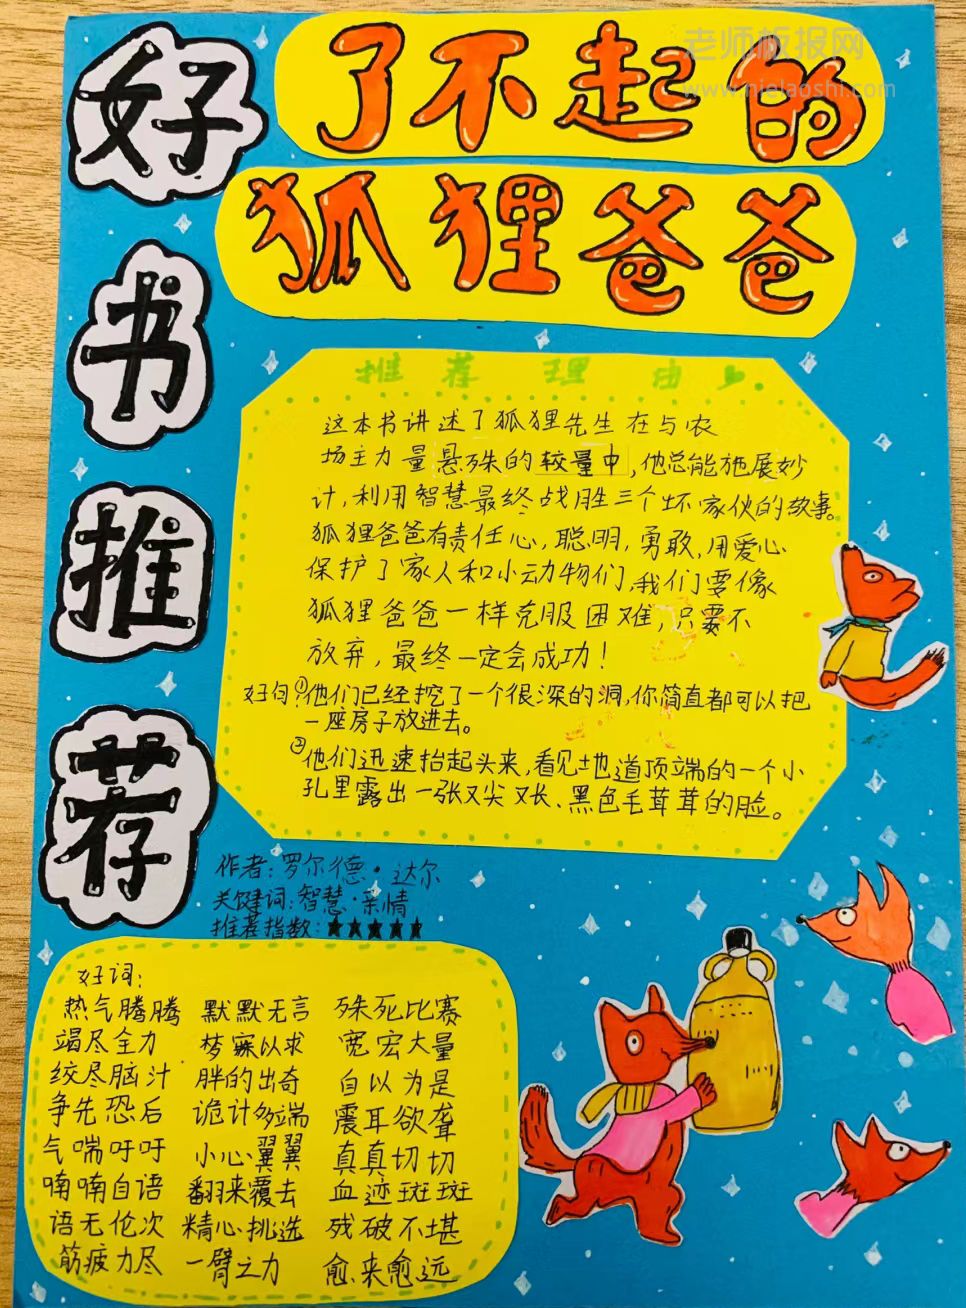 老师板报网
www.nielaoshi.com
好书推荐
了不起的
狐狸爸爸
推荐理由
这本书讲述了狐狸先生在与农
场主力量悬殊的较量中,他总能施展妙
计,利用智慧最终战胜三个坏家伙的故事。
狐狸爸爸有责任心,聪明,勇敢,用爱心
保护了家人和小动物们,我们要像
狐狸爸爸一样克服困难,只要不
放弃,最终一定会成功!
好句:①他们已经挖了一个很深的洞,你简直都可以把
一座房子放进去。
②他们迅速抬起头来,看见地道顶端的一个小
孔里露出一张又尖又长、黑色毛茸茸的脸。
作者:罗尔德·达尔
关键词:智慧·亲情
推荐指数:★★★★★
好词:
热气腾腾 默默无言 殊死比赛
竭尽全力 梦寐以求 宽宏大量
绞尽脑汁 胖的出奇 自以为是
争先恐后 诡计多端 震耳欲聋
气喘吁吁 小心翼翼 真真切切
喃喃自语 翻来覆去 血迹斑斑
语无伦次 精心挑选 残破不堪
筋疲力尽 一臂之力 愈来愈远